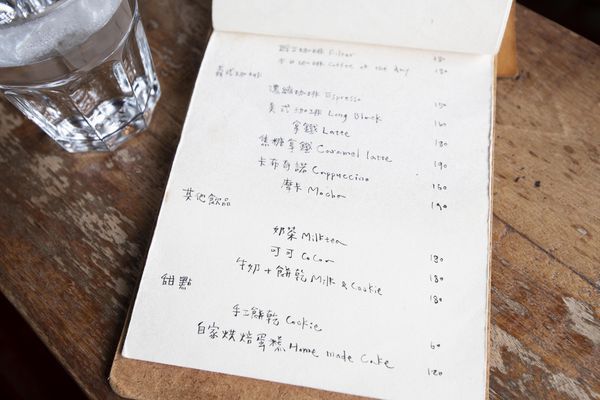 單品咖啡 Filter 180
本日咖啡 Coffee of the day 180
義式咖啡
濃縮咖啡 Espresso 150
美式咖啡 Long Black 160
拿鐵 Latte 180
焦糖拿鐵 Caramel latte 190
卡布奇諾 Cappuccino 160
摩卡 Mocha 190
其他飲品
奶茶 Milktea 180
可可 CoCoa 180
牛奶+餅乾 Milk & Cookie 180
甜點
手工餅乾 Cookie 60
自家烘焙蛋糕 Home made Cake 120